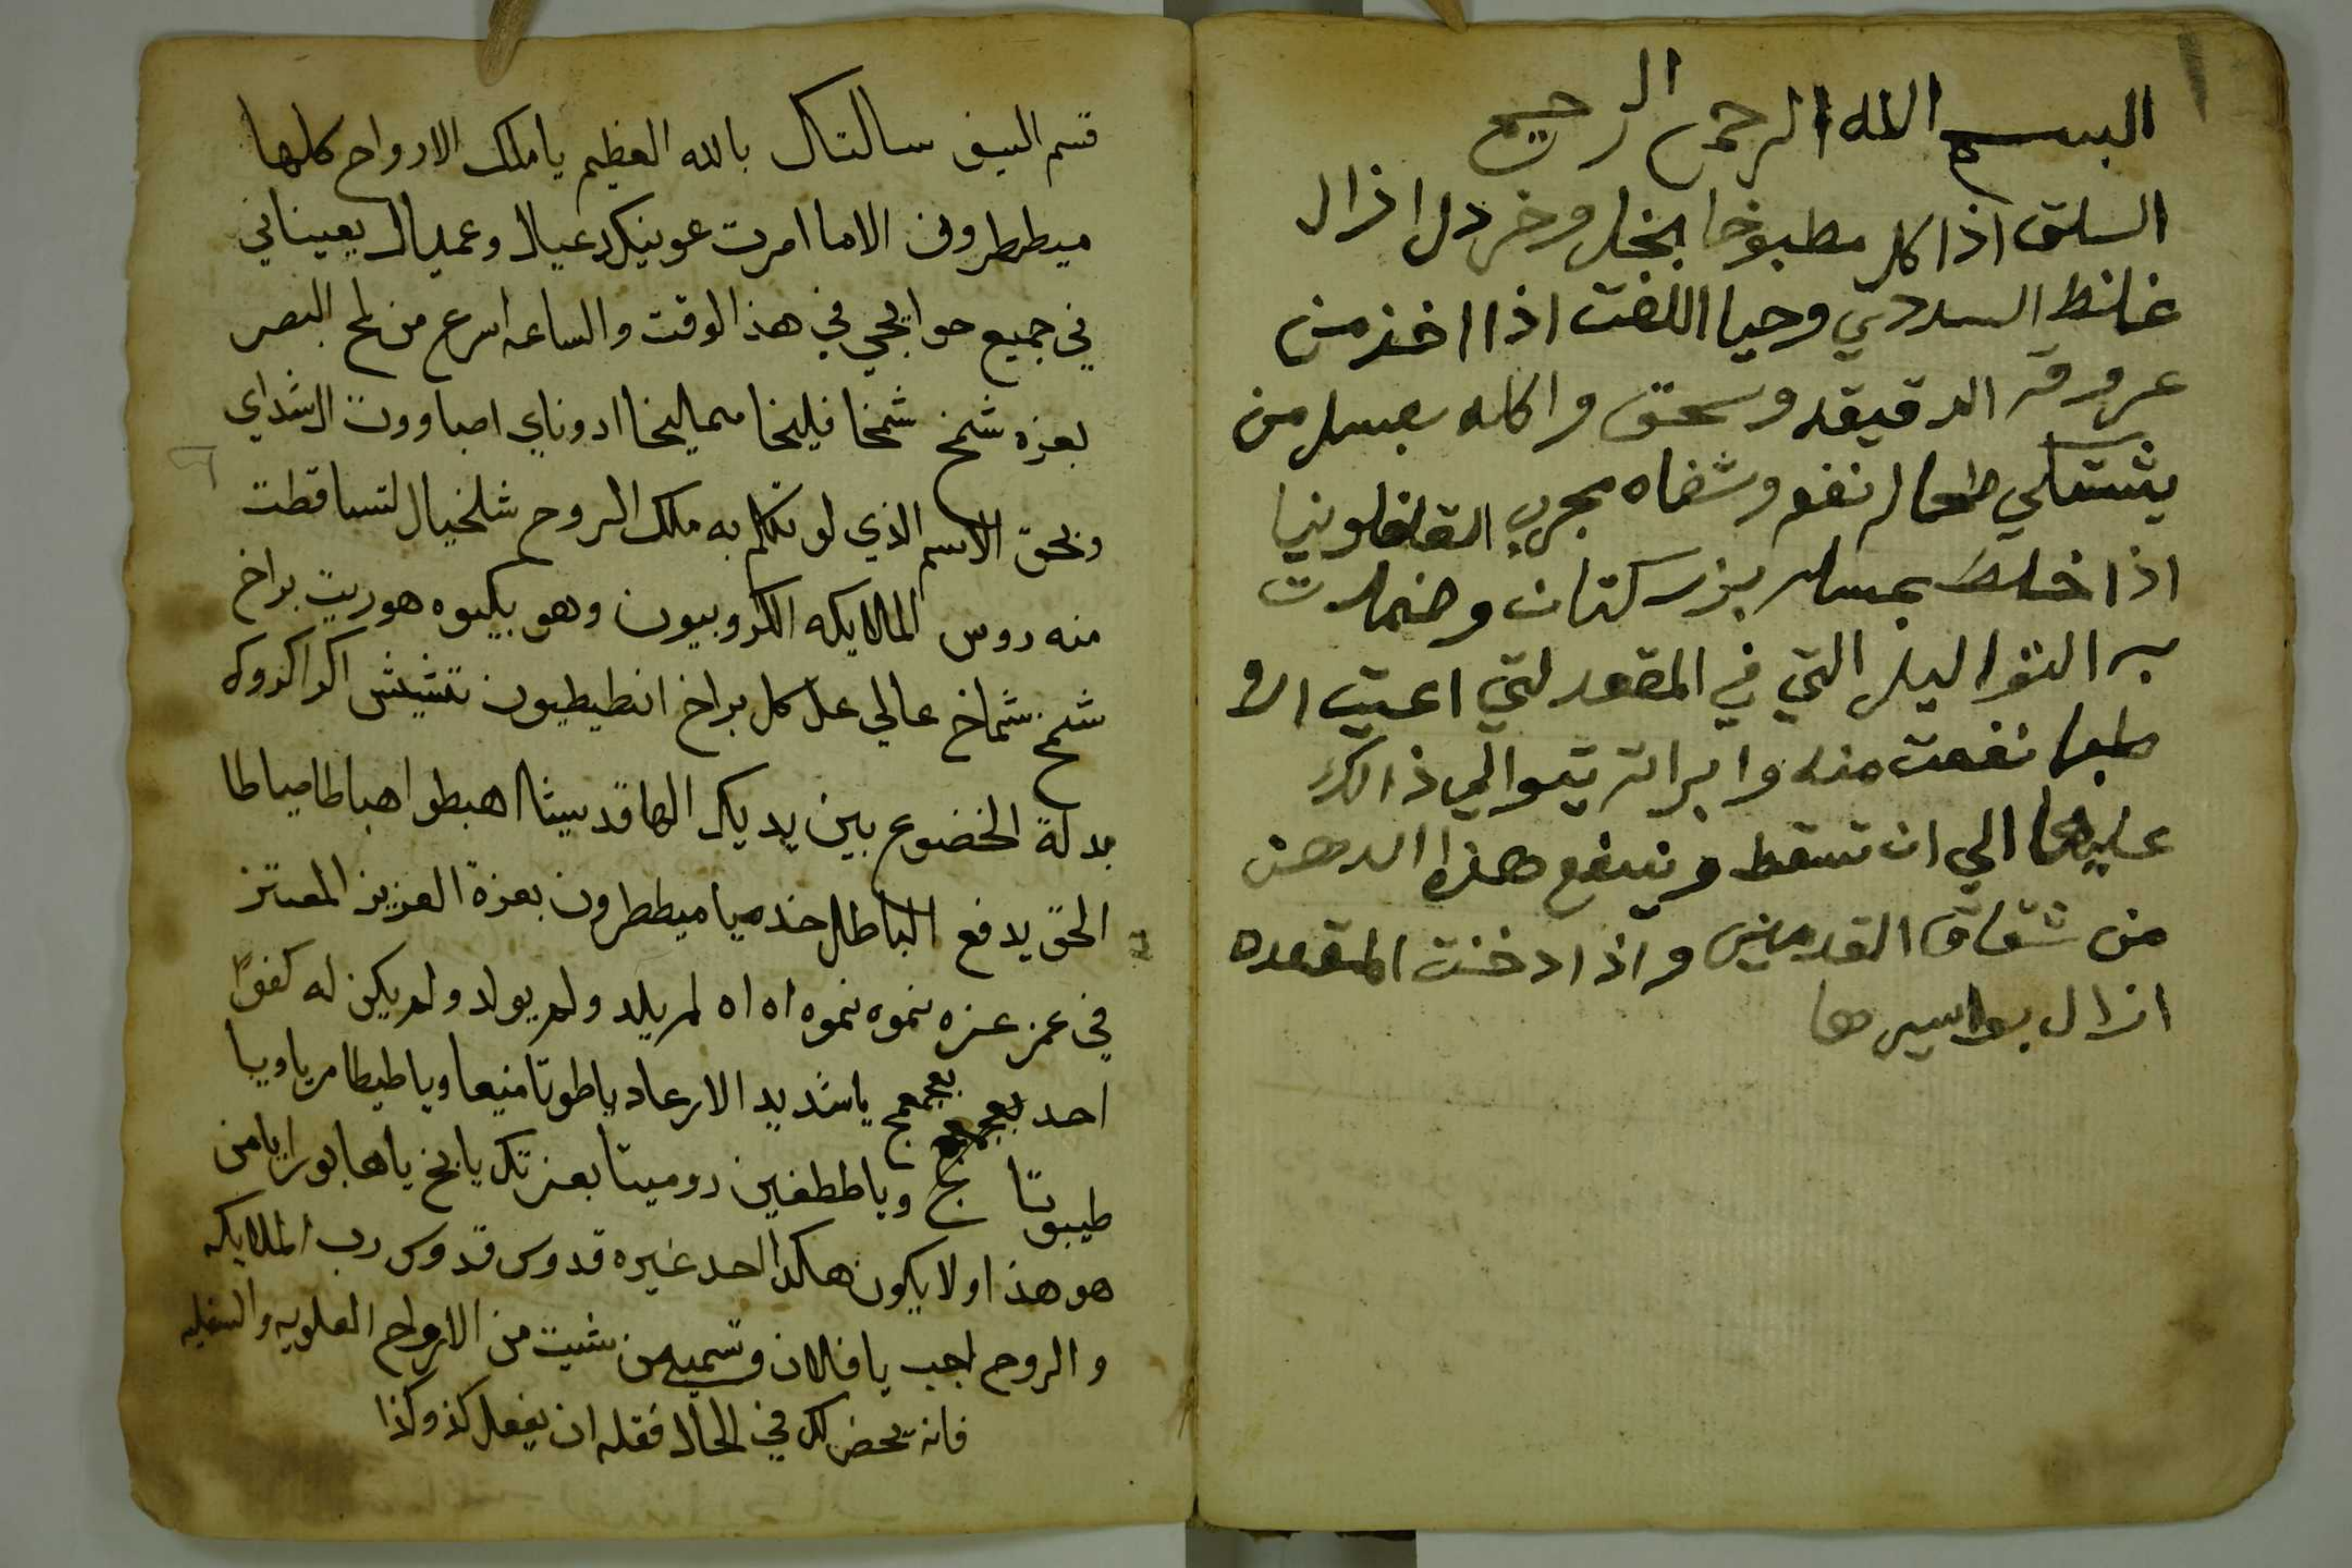 البسم الله الرحمن الرحيم
السلق اذا كل مطبوخا بخل وخردل ازال
غلظ السددي وحيا اللفت اذا اخذ من
عروقه الدقيقه وسحق واكله بعسل من
يشتكي طحال نفع وشفاه مجرب القلفلونيا
اذا خلط بمسل بزر كتان وضمدت
به الثواليل التي في المقعد لتي اعيت الا
طبا نفعت منه وابراته يتوالي ذالك
عليها الي ان تسقط وينفع هذا الدهن
من شقاق القدمين واذا دخنت المقعده
ازال بواسيرها
قسم السيف سالتك بالله العظيم يا ملك الارواح كلها
ميططرون الاما امرت عوينك دعيال وعميال يعيناني
في جميع حوايجي في هذا الوقت والساعه اسرع من لمح البصر
بعزه شمخ شمخا فيلخا سماليخا ادوناي اصباووت الشداي
وبحق الاسم الذي لو تكلم به ملك الروح شلخيال لتساقطت
منه روس الملايكه الكروبيون وهو بكيوه هوريت براخ
شمخ شماخ عالي علا كل براخ انطيطيون نتشيش اكراكروك
بدلة الخضوع بين يديك الها قد سيثا اهبطوا هباطا مياطا
الحق يدفع الباطل خدميا ميططرون بعزة العزيز المعتز
في عز عزه نموه نموه اه اه لم يلد ولم يولد ولم يكن له كفوًا
احد بعجمعج ياشديد الارعاد ياطوتا منيعا وياطيطا مرياويا
طيبوتا وياططغين دوميتا بعزتك يا يخ ياها بورايا من
هو هذا ولا يكون هكذا احد غيره قدوس قدوس رب الملايكه
والروح اجب يا فلان وتسمي من شيت من الارواح العلويه والسفليه
فانه يحضر لك في الحال فقله ان يفعل كذ وكذا